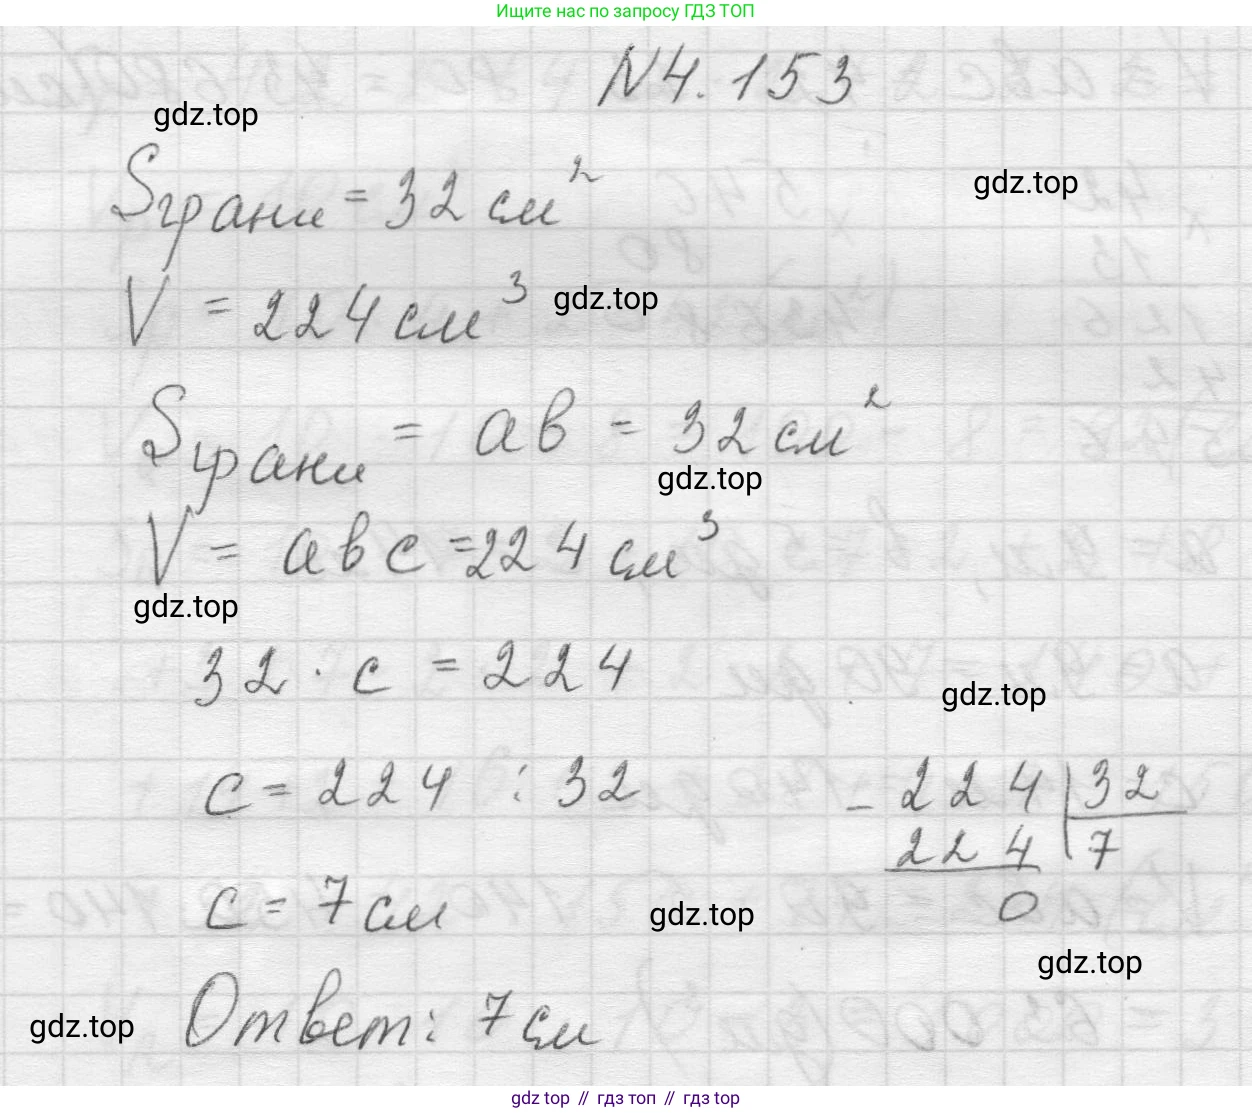 Ищите нас по запросу ГДЗ ТОП
N4.153
gdz.top
Sграни = 32 см²
gdz.top
V = 224 см³
gdz.top
Sграни = ab = 32 см²
gdz.top
V = abc = 224 см³
gdz.top
32 · c = 224
gdz.top
c = 224 : 32
- 224 | 32
224 | 7
0
c = 7 см
gdz.top
gdz.top
Ответ: 7 см
gdz.top
gdz.top // гдз топ // гдз.top